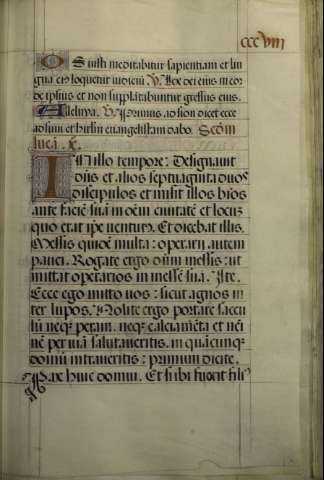 cccviii
OS iusti meditabitur sapientiam et lin
gua eius loquetur iudiciū. V. Lex dei eius in cor
de ipsius et non supplātabuntur gressus eius.
Alleluya. V. Primus ad sion dicet ecce
adsum et hirlm euangelistam dabo. Scdm
lucā. x.
IN illo tempore: Designauit
dn̄s et alios septuaginta duos
discipulos et misit illos binos
ante faciē suā in oēm ciuitatē et locū
quo erat ipe venturus. Et dicebat illis.
Messis quidē multa: operarij autem
pauci. Rogate ergo dūm messis: ut
mittat operarios in messē suā. Ite.
Ecce ergo mitto uos: sicut agnos in
ter lupos. Nolite ergo portare saccu
lū neqȝ peram. neqȝ calciamēta et nēi
nē per uiā salutaueritis. in quācūqȝ
domū intraueritis: primum dicite.
Pax huic domui. Et si ibi fuerit fili